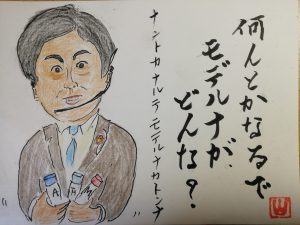 何んとかなるで
モデルナが、
どんな?
ナントカナルデモデルナガドンナ
A
A